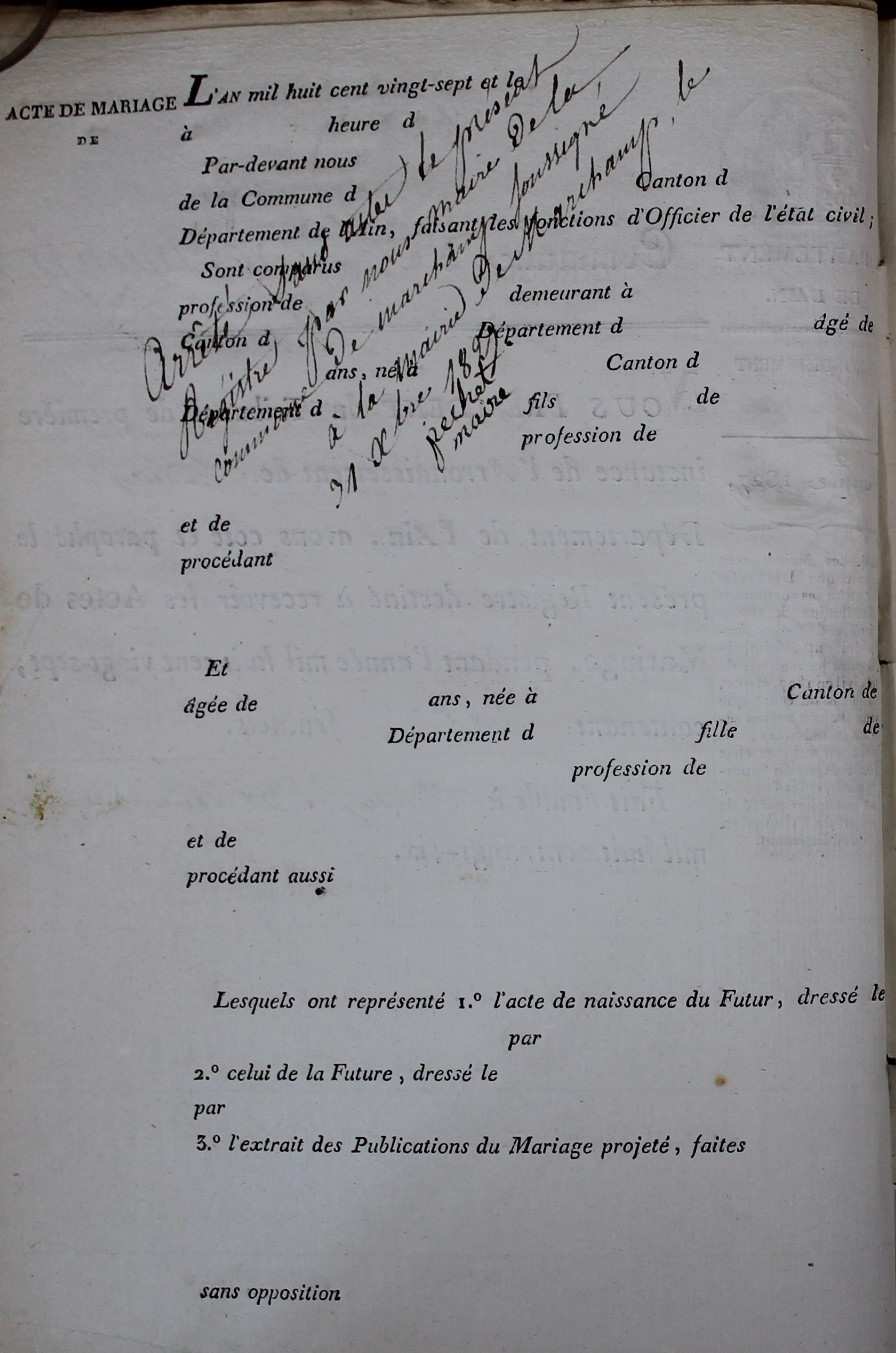 ACTE DE MARIAGE L'AN mil huit cent vingt-sept et le
DE à heure d
Par-devant nous
de la Commune d Canton d
Département de l'Ain, faisant les fonctions d'Officier de l'état civil;
Sont comparus
profession de demeurant à
Canton d Département d âgé de
ans, né à Canton d
Département d fils de
profession de
et de
procédant
Et
âgée de ans, née à Canton de
Département d fille de
profession de
et de
procédant aussi
Lesquels ont représenté 1.º l'acte de naissance du Futur, dressé le
par
2.º celui de la Future, dressé le
par
3.º l'extrait des Publications du Mariage projeté, faites
sans opposition
Arrêté sans acte le présent
Régistre, par nous maire de la
commune de marchamp soussigné
à la mairie de Marchamp, le
31 Xbre 1827
maire